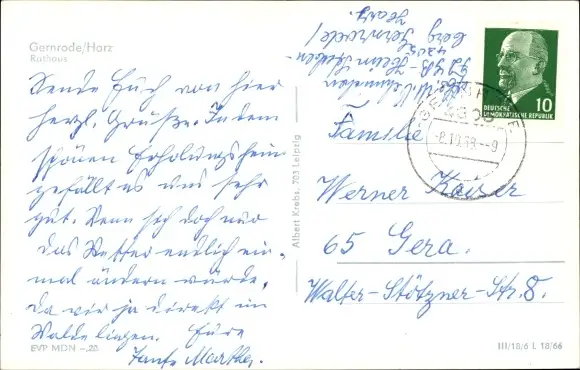 Gernrode/Harz
Rathaus
Sende Euch von hier
herzl. Grüße. In dem
schönen Erholungsheim
gefällt es uns sehr
gut. Wenn sich doch nur
das Wetter endlich ein-
mal ändern würde,
da wir ja direkt im
Walde liegen. Eure
Tante Marthe.
EVP MDN -,20
Albert Krebs, 703 Leipzig
Harz
4305
berg Gernrode/
DEUTSCHE
DEMOKRATISCHE REPUBLIK
10
-8.10.68--9
Familie
Werner Kaiser
65 Gera.
Walter-Stötzner-Str. 8.
III/18/6 L 18/66